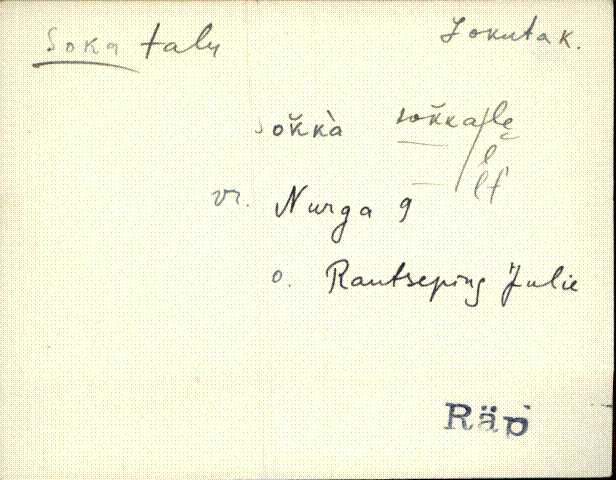 Soka talu
Jokuta k.
sŏk̆k̀a sok̆ka/le̬
l
lt
vr. Nurga 9
o. Rautseping Julie
Räp